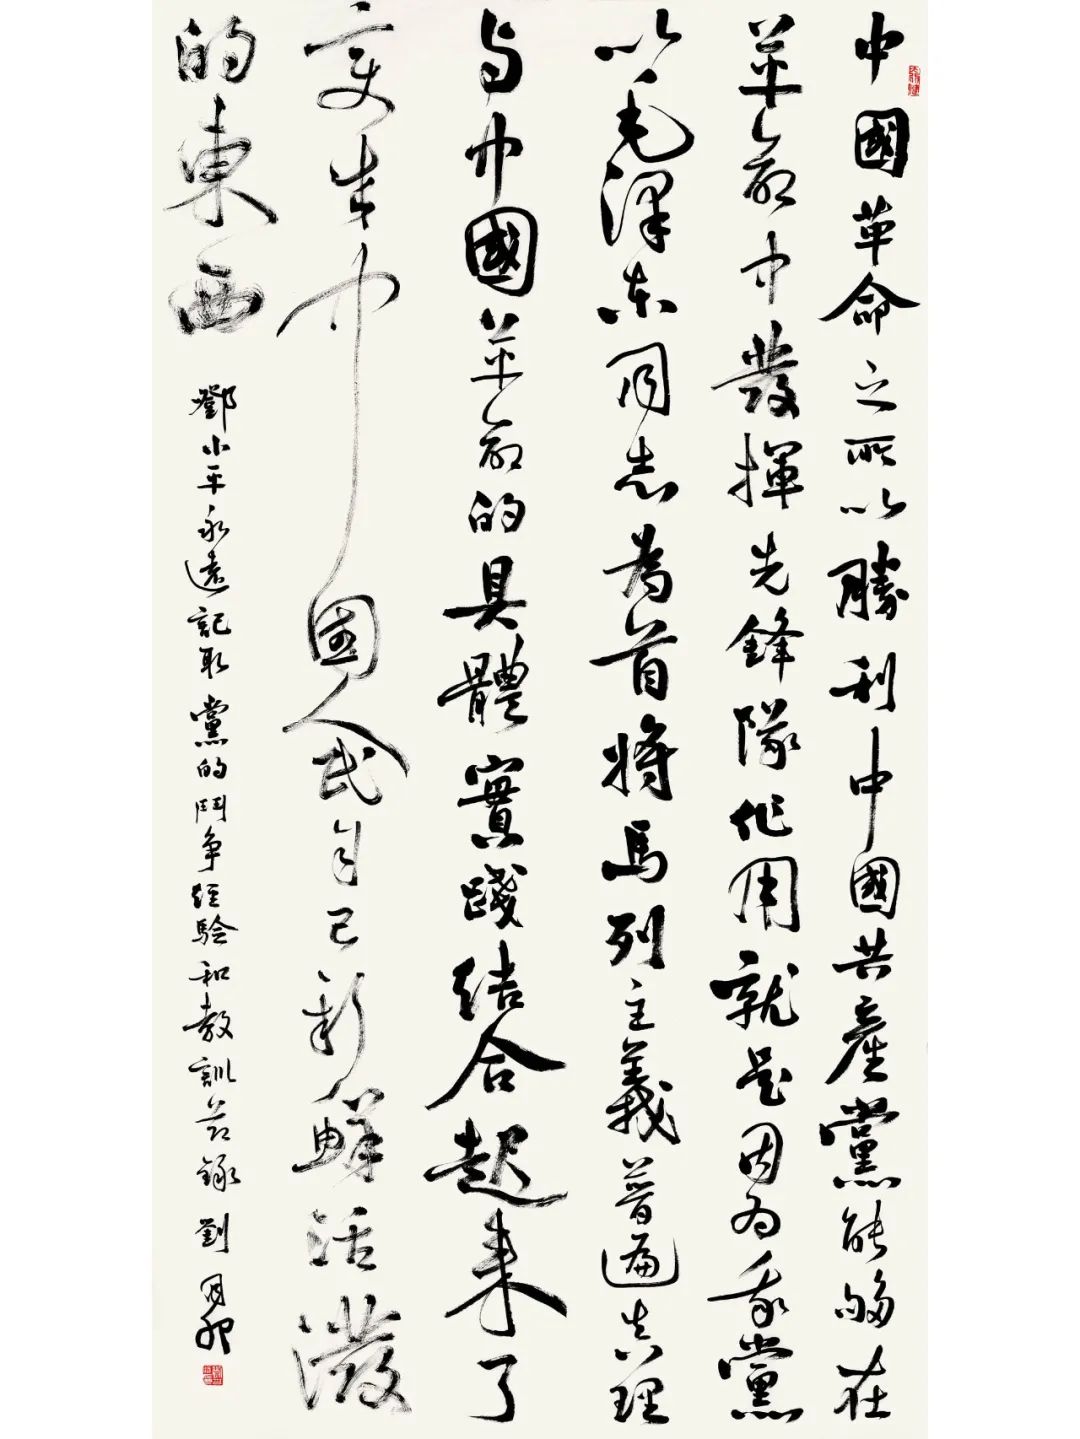 中國革命之所以勝利中國共產黨能够在
革命中發揮先鋒隊作用就是因为我黨
以毛澤东同志為首将馬列主義普遍真理
与中國革命的具體實踐结合起来了
变成中國人民自己新鲜活潑
的東西
鄧小平永遠記取黨的鬥争经验和教訓节録 劉月卯